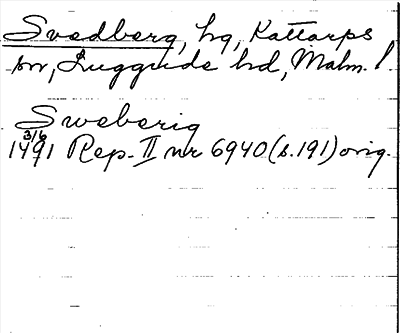 Svedberg, hg, Kattarps
sn, Luggude hd, Malm. l
Sweberig
1491 3/6 Rep. II nr 6940 (s. 191) orig.